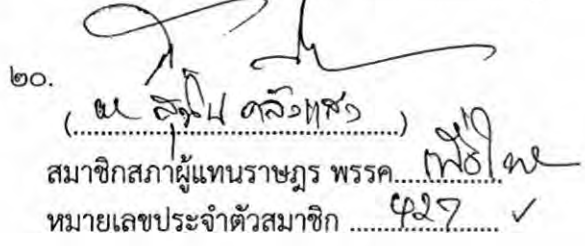 ๒๐.
(นายสุทิน คลังแสง)
สมาชิกสภาผู้แทนราษฎร พรรค เพื่อไทย
หมายเลขประจำตัวสมาชิก 427 ✓